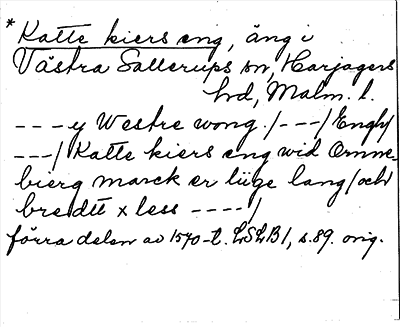 * Katte kiers eng, äng i
Västra Sallerups sn, Harjagers
hd, Malm. l.
---y Westre wong. /---/ Engh/
---/ Katte kiers eng wid Ornne-
bierg marck er liige lang/och
bredtt x less ----/
förra delen av 1570-t. LSLB1, s.89. orig.